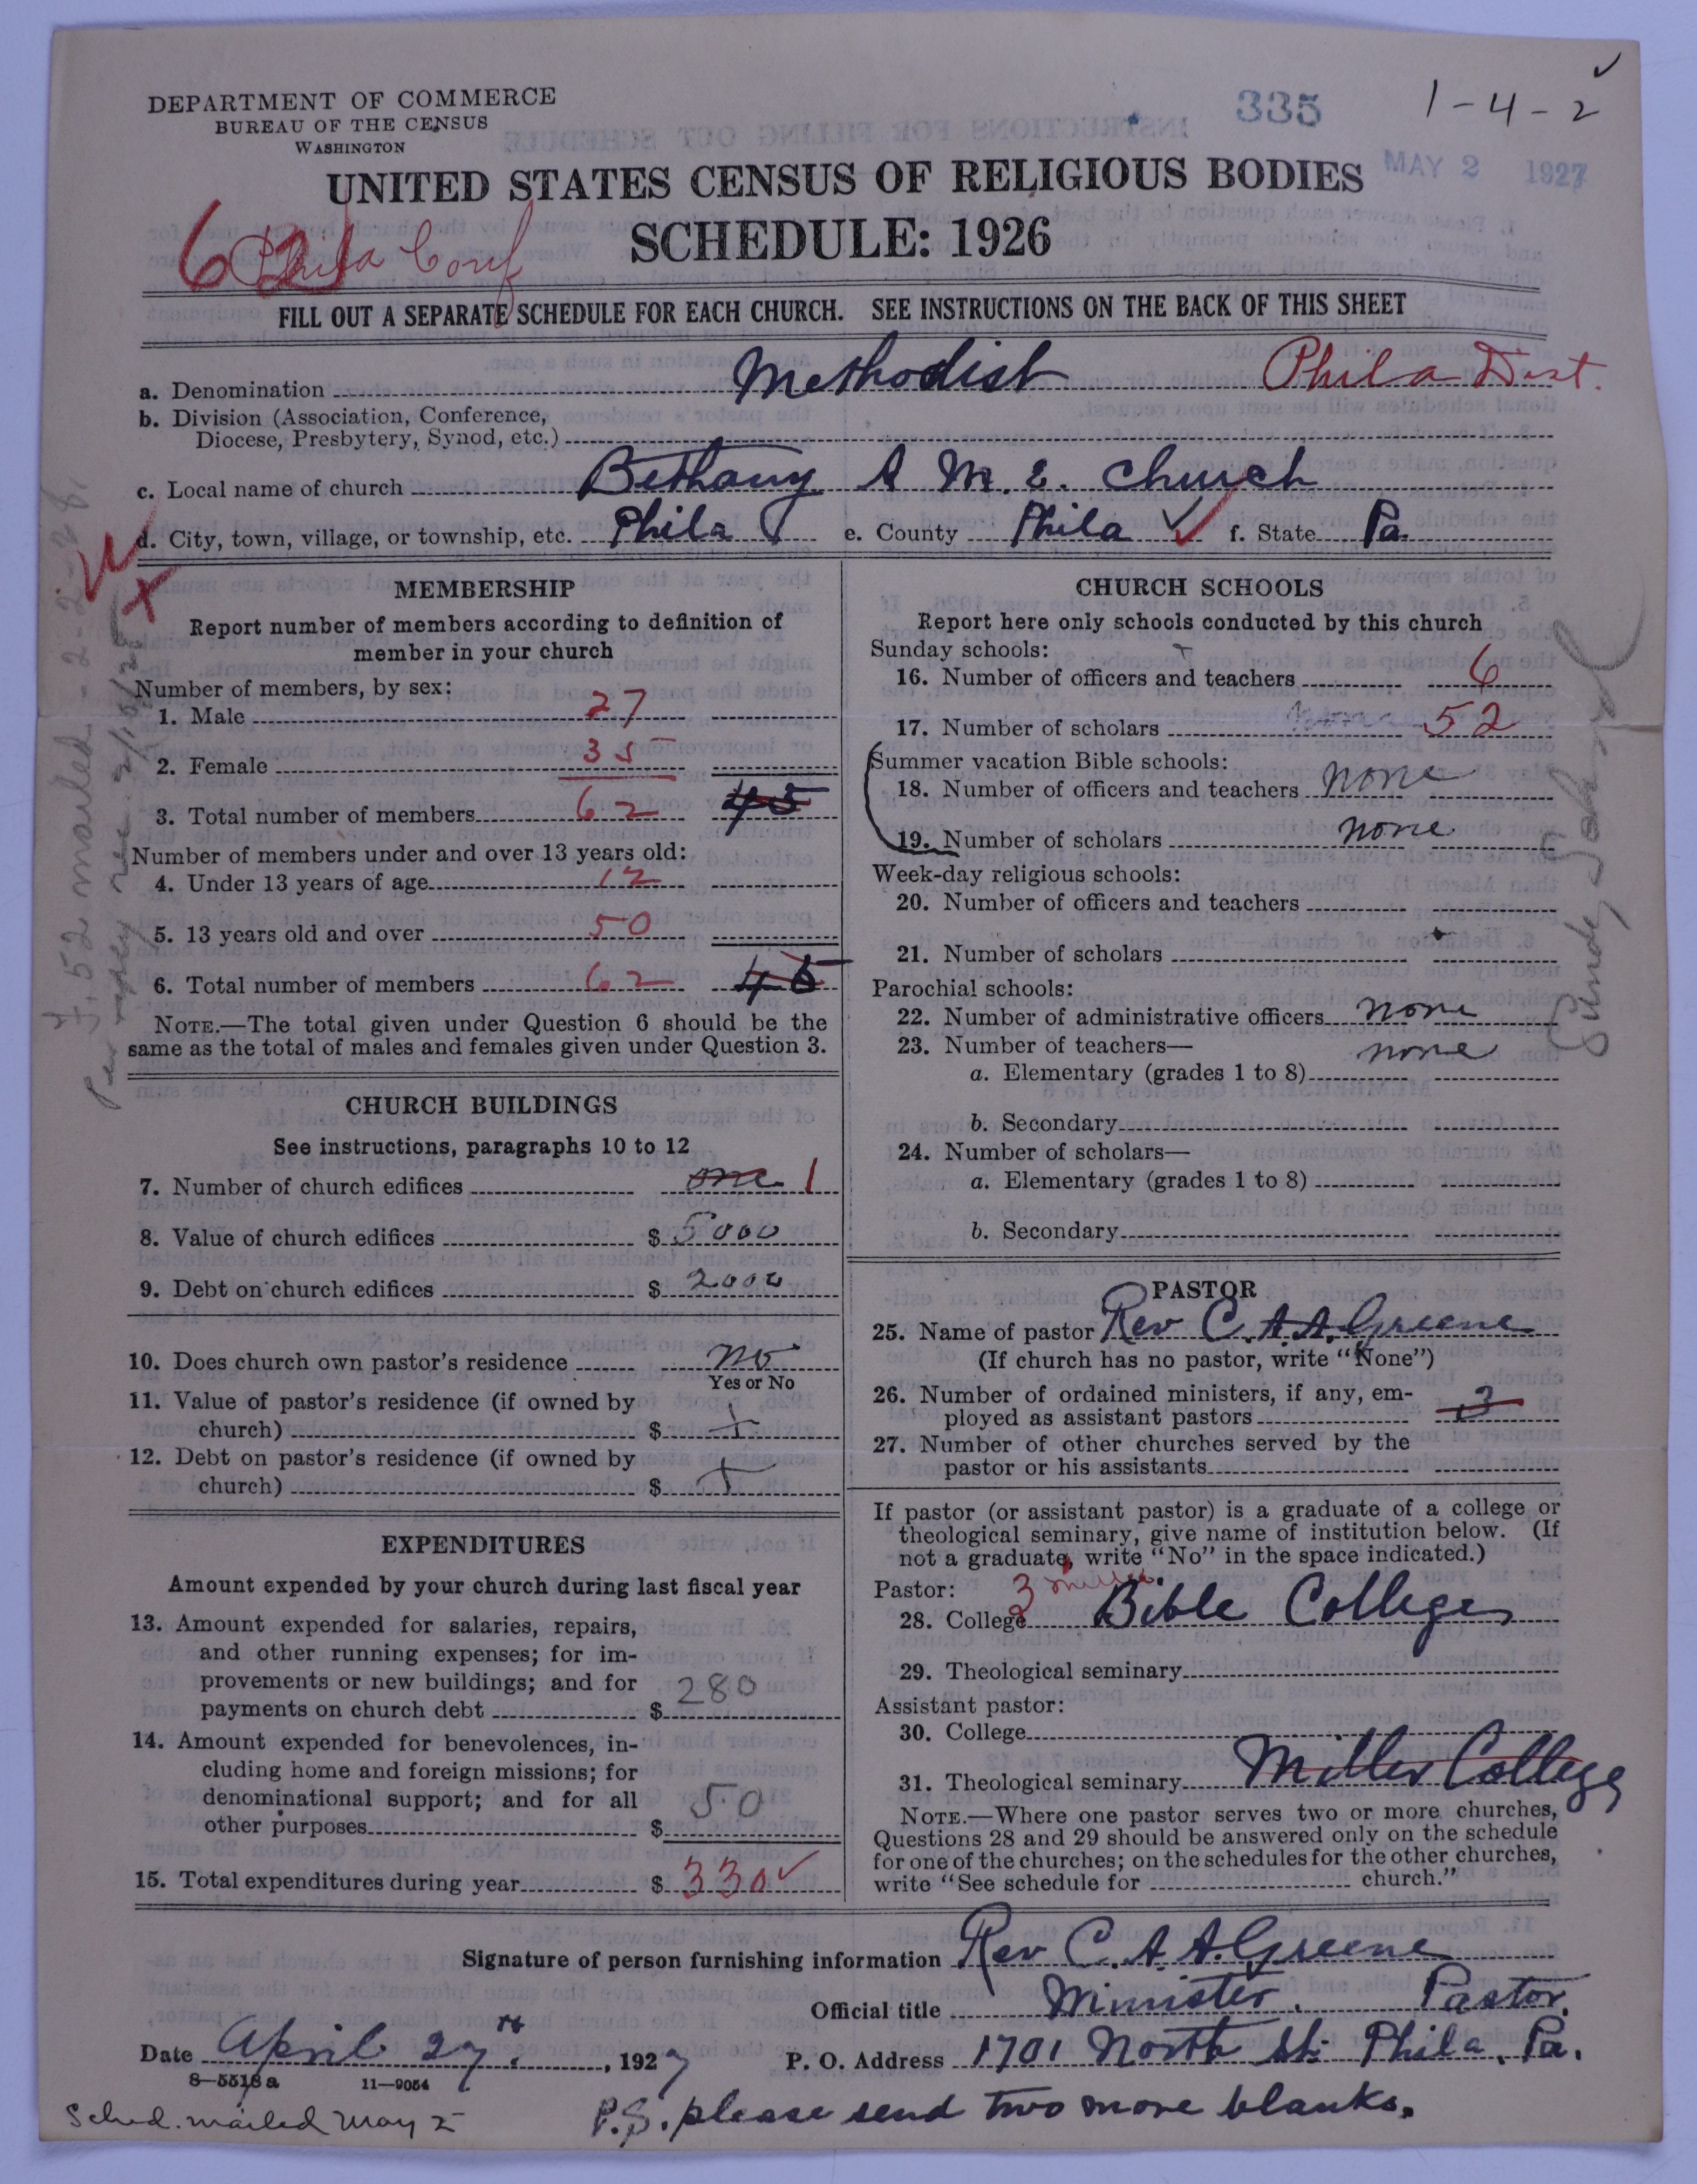 DEPARTMENT OF COMMERCE
BUREAU OF THE CENSUS
WASHINGTON
335
1-4-2
MAY 2 1927
UNITED STATES CENSUS OF RELIGIOUS BODIES
SCHEDULE: 1926
6 Phila Conf
FILL OUT A SEPARATE SCHEDULE FOR EACH CHURCH. SEE INSTRUCTIONS ON THE BACK OF THIS SHEET
a. Denomination Methodist Phila Dist.
b. Division (Association, Conference,
Diocese, Presbytery, Synod, etc.)
c. Local name of church Bethany A M. E. Church
d. City, town, village, or township, etc. Phila e. County Phila f. State Pa.
MEMBERSHIP
Report number of members according to definition of
member in your church
Number of members, by sex:
1. Male 27
2. Female 35
3. Total number of members 62 45
Number of members under and over 13 years old:
4. Under 13 years of age 12
5. 13 years old and over 50
6. Total number of members 62 45
NOTE.—The total given under Question 6 should be the
same as the total of males and females given under Question 3.
CHURCH BUILDINGS
See instructions, paragraphs 10 to 12
7. Number of church edifices one 1
8. Value of church edifices $ 5000
9. Debt on church edifices $ 2000
10. Does church own pastor's residence no
Yes or No
11. Value of pastor's residence (if owned by
church) $
12. Debt on pastor's residence (if owned by
church) $
EXPENDITURES
Amount expended by your church during last fiscal year
13. Amount expended for salaries, repairs,
and other running expenses; for im-
provements or new buildings; and for
payments on church debt $ 280
14. Amount expended for benevolences, in-
cluding home and foreign missions; for
denominational support; and for all
other purposes $ 50
15. Total expenditures during year $ 330
CHURCH SCHOOLS
Report here only schools conducted by this church
Sunday schools:
16. Number of officers and teachers 6
17. Number of scholars 52
Summer vacation Bible schools:
18. Number of officers and teachers none
19. Number of scholars none
Week-day religious schools:
20. Number of officers and teachers
21. Number of scholars
Parochial schools:
22. Number of administrative officers none
23. Number of teachers— none
a. Elementary (grades 1 to 8)
b. Secondary
24. Number of scholars—
a. Elementary (grades 1 to 8)
b. Secondary
PASTOR
25. Name of pastor Rev C. A A. Greene
(If church has no pastor, write "None")
26. Number of ordained ministers, if any, em-
ployed as assistant pastors 3
27. Number of other churches served by the
pastor or his assistants
If pastor (or assistant pastor) is a graduate of a college or
theological seminary, give name of institution below. (If
not a graduate, write "No" in the space indicated.)
Pastor:
28. College 3 Bible College
29. Theological seminary
Assistant pastor:
30. College
31. Theological seminary Miller College
NOTE.—Where one pastor serves two or more churches,
Questions 28 and 29 should be answered only on the schedule
for one of the churches; on the schedules for the other churches,
write "See schedule for church."
Signature of person furnishing information Rev C. A. A. Greene
Official title Minister. Pastor.
Date April 27th, 1927 P. O. Address 1701 North St. Phila. Pa.
8—5518a 11—9054
Sched. mailed May 2
P.S. please send two more blanks.
Sunday School